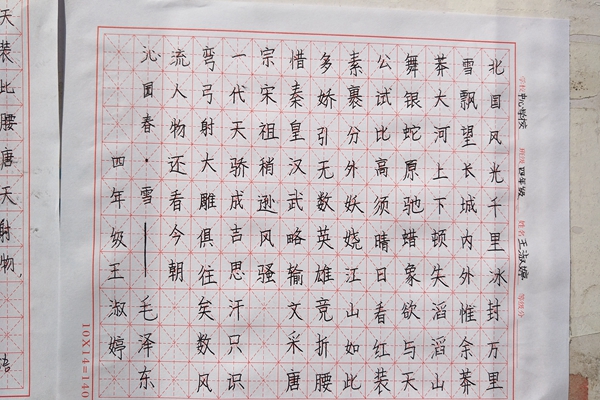 学校 中心学校 班级 四年级 姓名 王淑婷 等级分
北国风光千里冰封万里
雪飘望长城内外惟余莽
莽大河上下顿失滔滔山
舞银蛇原驰蜡象欲与天
公试比高须晴日看红装
素裹分外妖娆江山如此
多娇引无数英雄竞折腰
惜秦皇汉武略输文采唐
宗宋祖稍逊风骚
一代天骄成吉思汗只识
弯弓射大雕俱往矣数风
流人物还看今朝
沁园春·雪——毛泽东
四年级王淑婷
10X14=140
天装比腰唐天射物，